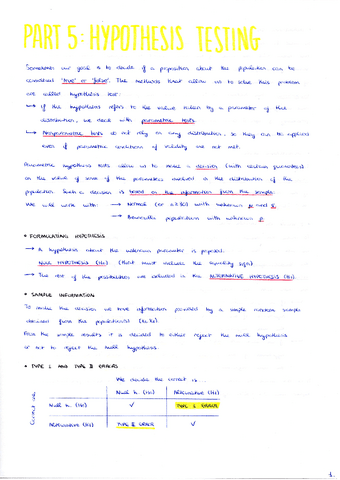 PART 5: HYPOTHESIS TESTING
Sometimes our goal is to decide if a proposition about the population can be
considered "true" or "false". The methods that allow us to solve this problem
are called hypothesis test:
→ If the hypothesis refers to the value taken by a parameter of the
distribution, we deal with parametric tests
→ Nonparametric tests do not rely on any distribution, so they can be applied
even if parametric conditions of validity are not met.
Parametric hypothesis tests allow us to make a decision (with certain guarantees)
on the value of some of the parameters involved in the distribution of the
population. Such a decision is based on the information from the sample.
We will work with: → Normal (or n≥30) with unknown μ and
→ Binomial populations with unknown p.
• FORMULATING HYPOTHESIS
→ A hypothesis about the unknown parameter is proposed:
NULL HYPOTHESIS (H0) (that must include the equality sign)
→ The rest of the possibilities are included in the ALTERNATIVE HYPOTHESIS (H1).
• SAMPLE INFORMATION
To make the decision we have information provided by a simple random sample
obtained from the population(s)
From the sample results it is decided to either reject the null hypothesis
or not to reject the null hypothesis.
• TYPE I AND TYPE II ERRORS
We decide the correct is...
Null h. (H0) Alternative (H1)
Correct one
Null h. (H0) ✓ TYPE I ERROR
Alternative (H1) TYPE II ERROR ✓
1.